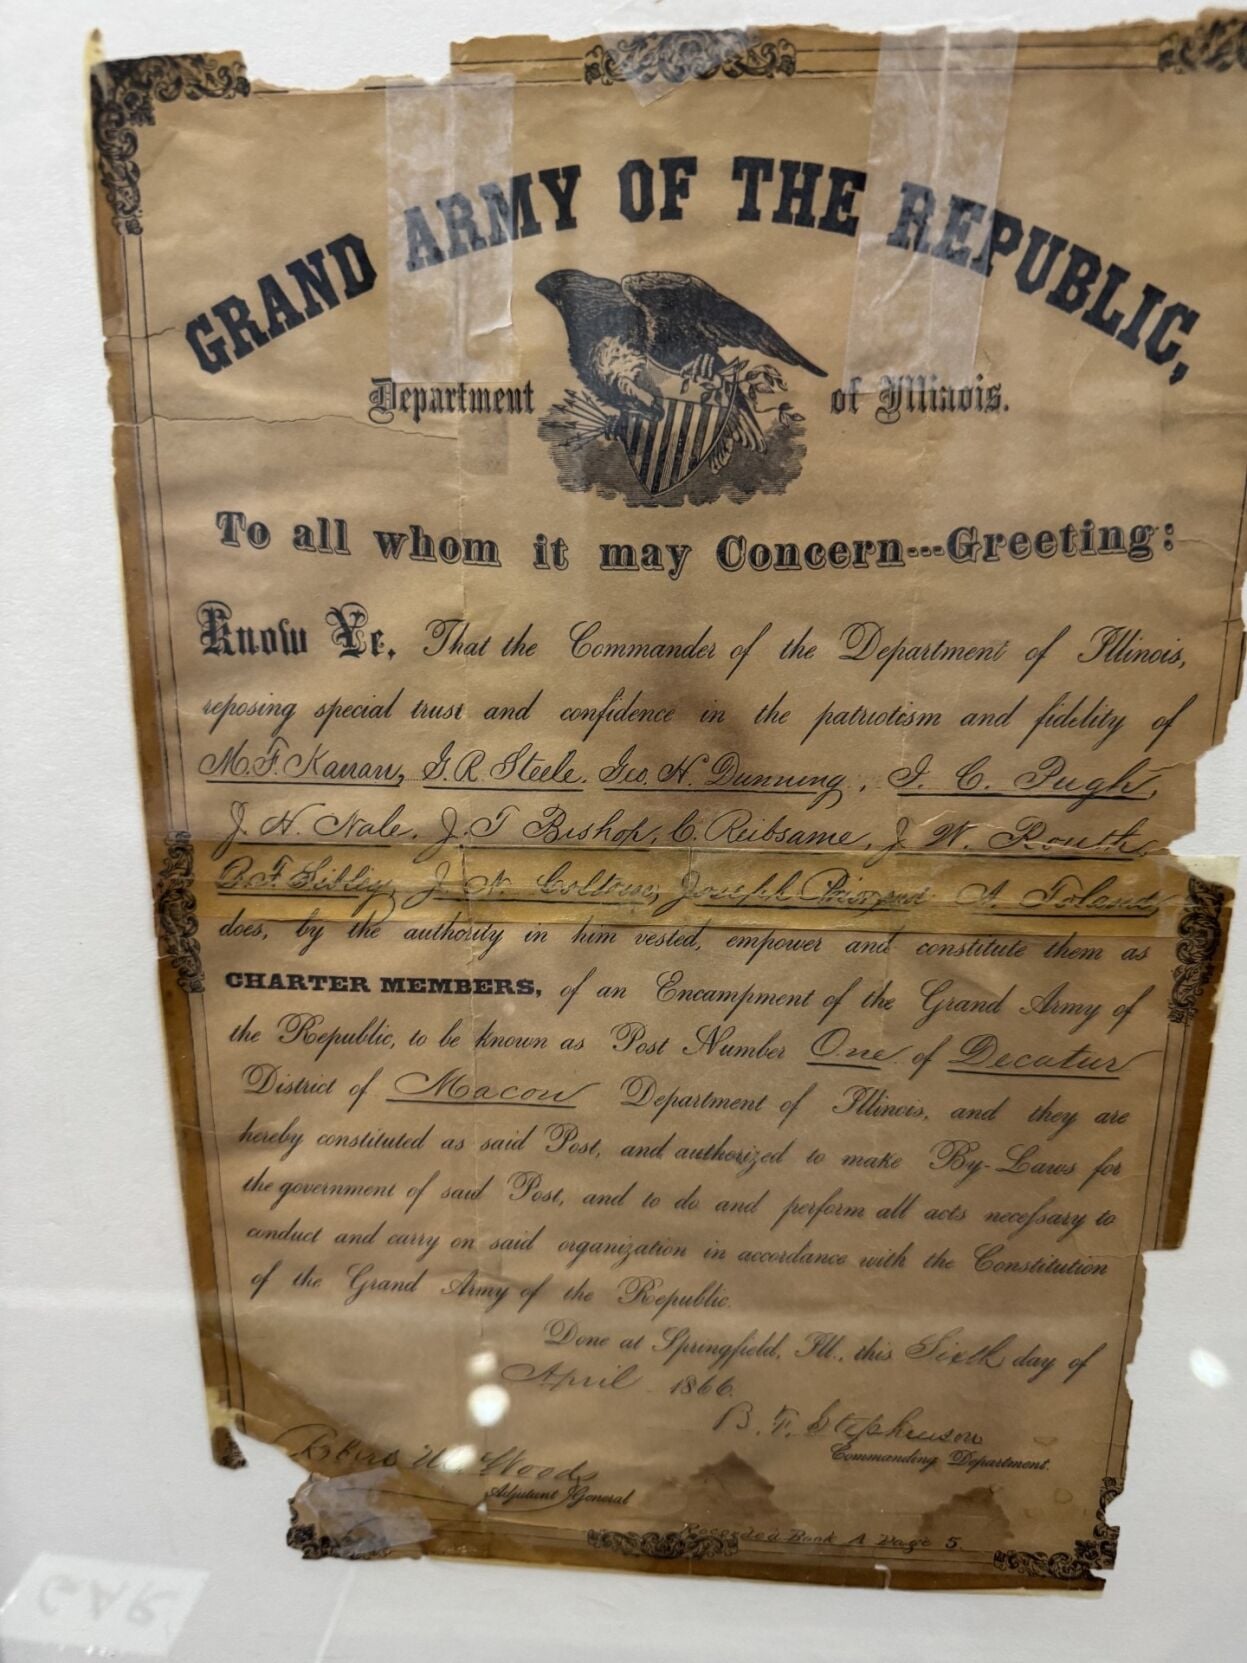 GRAND ARMY OF THE REPUBLIC,
Department of Illinois.
To all whom it may Concern---Greeting:
Know Ye, That the Commander of the Department of Illinois,
reposing special trust and confidence in the patriotism and fidelity of
M. F. Kanan, G. R. Steele. Geo. H. Dunning, I. C. Pugh,
J. H. Nale. J. T Bishop, C. Reibsame, J. W. Routh,
B. F. Sibley, J. N. Coltrin, Joseph Prior, and A. Toland,
does, by the authority in him vested, empower and constitute them as
CHARTER MEMBERS, of an Encampment of the Grand Army of
the Republic, to be known as Post Number One of Decatur
District of Macon Department of Illinois, and they are
hereby constituted as said Post, and authorized to make By-Laws for
the government of said Post, and to do and perform all acts necessary to
conduct and carry on said organization in accordance with the Constitution
of the Grand Army of the Republic.
Done at Springfield, Ill., this Sixth day of
April 1866.
B. F. Stephenson
Commanding Department.
Robert M. Woods
Adjutant General
Recorded Book A Page 5.
GAR